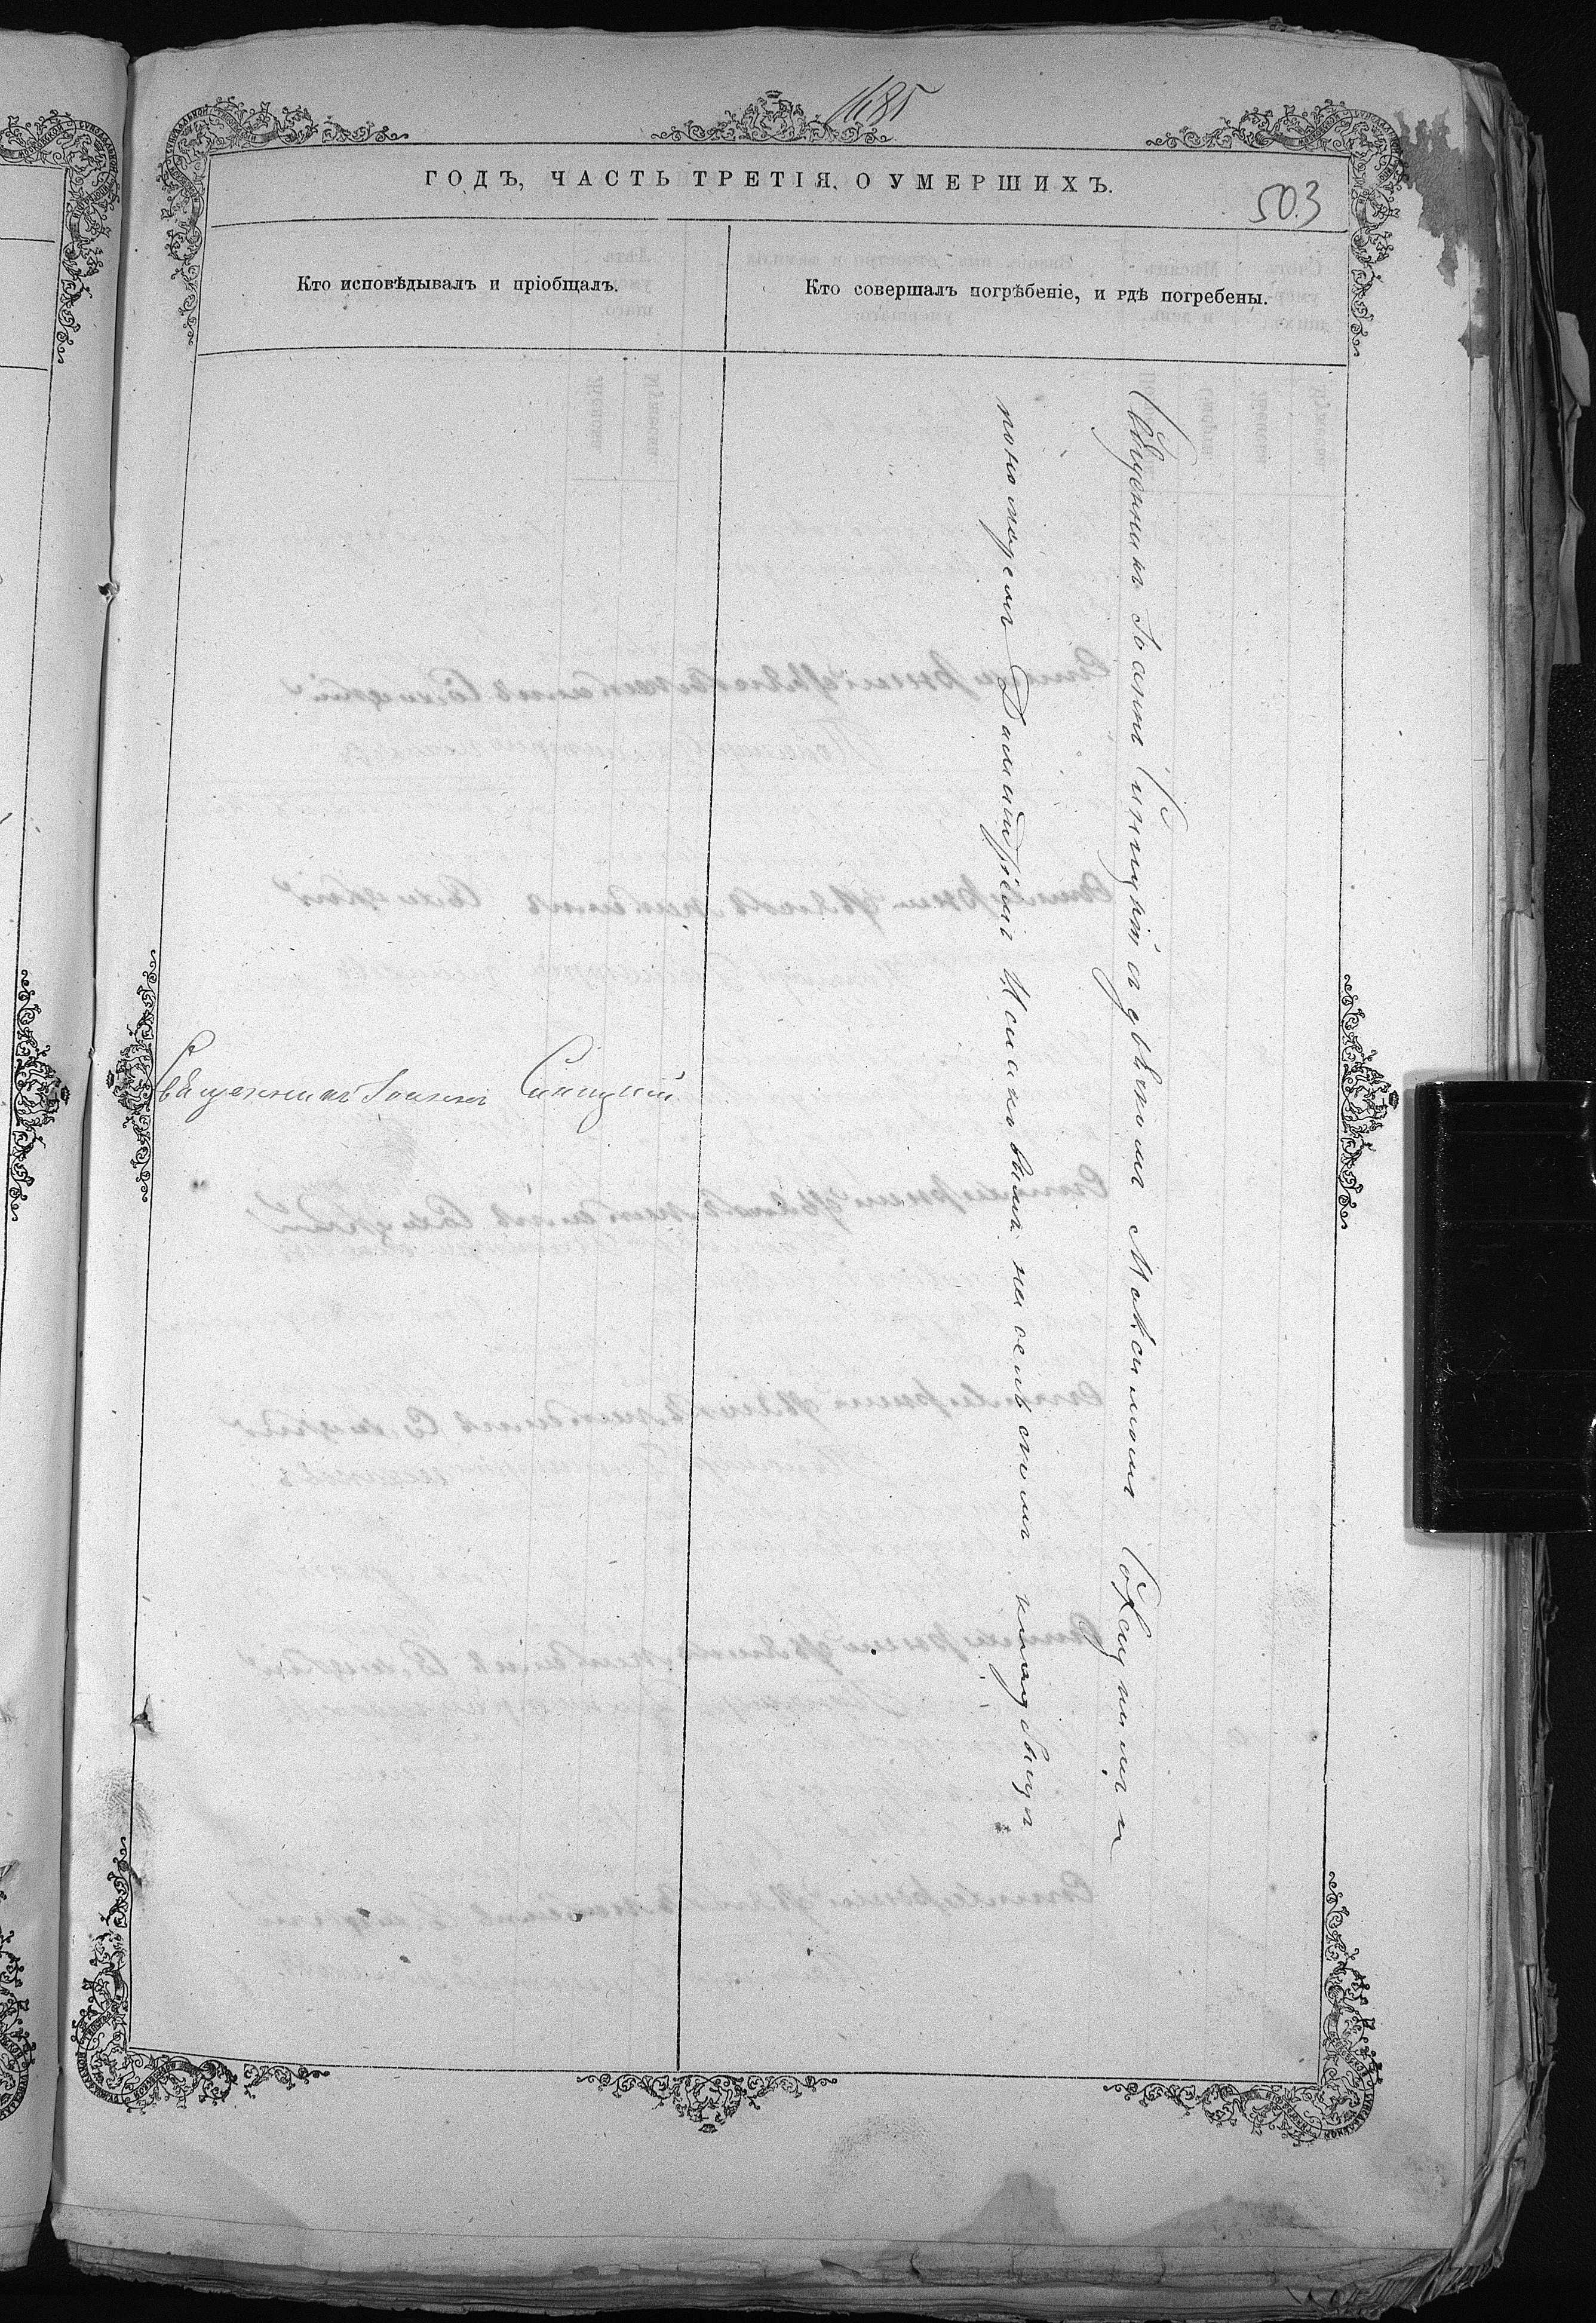 1185
ГОДЪ, ЧАСТЬ ТРЕТІЯ, О УМЕРШИХЪ.
503
Кто исповѣдывалъ и пріобщалъ.
Кто совершалъ погрѣбеніе, и гдѣ погребены.
Священникъ Іоаннъ Синицкій
Священникъ Іоаннъ Синицкій съ дьякомъ Максимомъ Сохацкимъ и
пономаремъ Димитріемъ на сельскомъ кладбищѣ